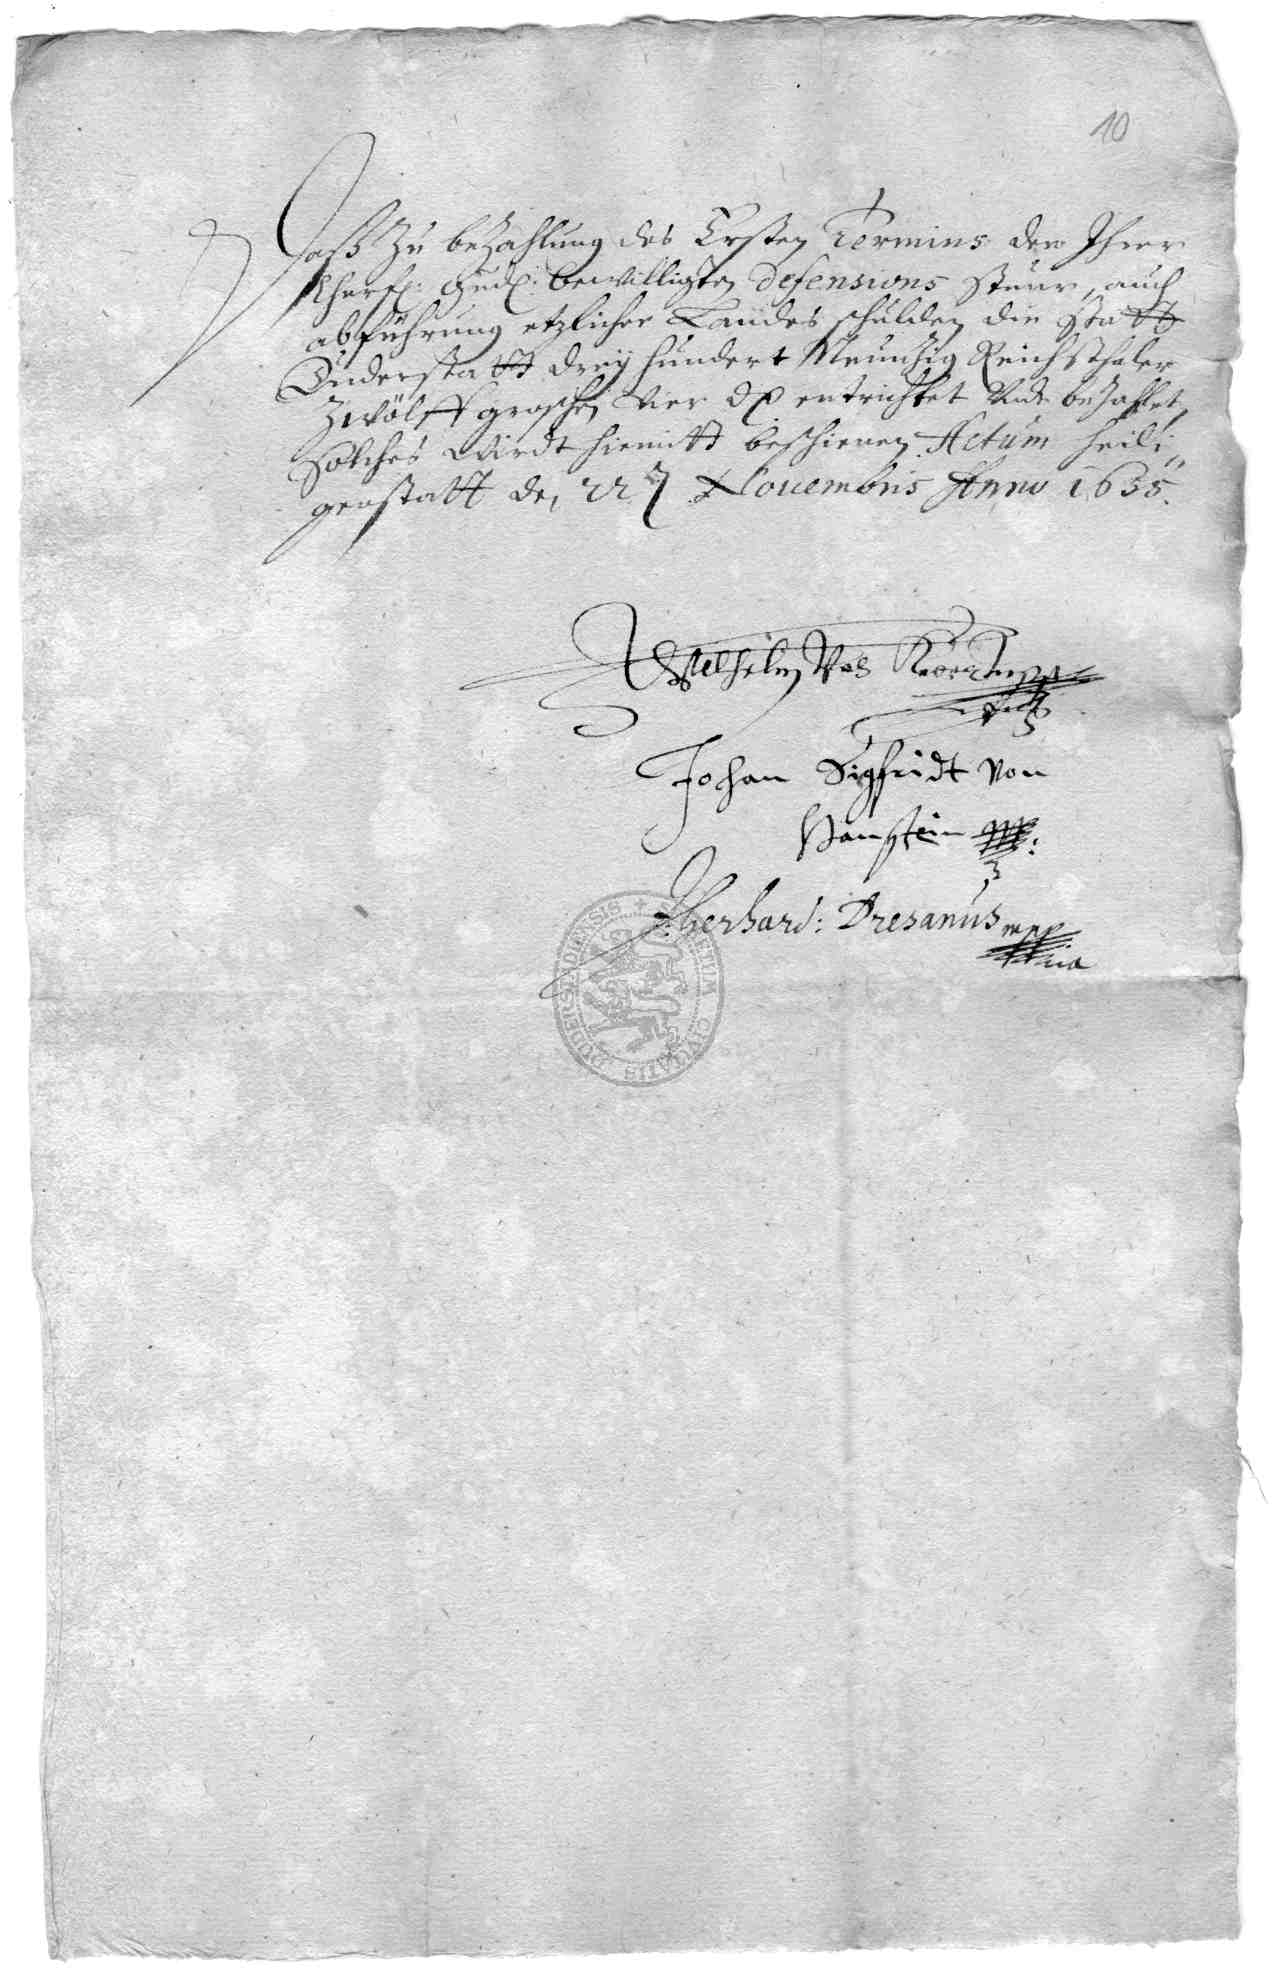 10
Daß Zu bezahlung des Ersten Termins der Ihrer
Churf: Gnd: bewilligten defensions steur, auch
abführung etzlicher Landes schulden die Statt
Duderstatt dreÿ hundert Neunzig Reichsthaler
Zwölff groschen vier d entrichtet vndt bezahlet,
Solches Wirdt hiemitt beschienen. Actum Heili„
genstatt den 22 Nouembris Anno 1635.
Wilhelm von
Johan Sigfridt von
Hanstein mp:
Eberhard: Dresanus mpp
ria
SECRETUM CIVITATIS DUDERSTADIENSIS